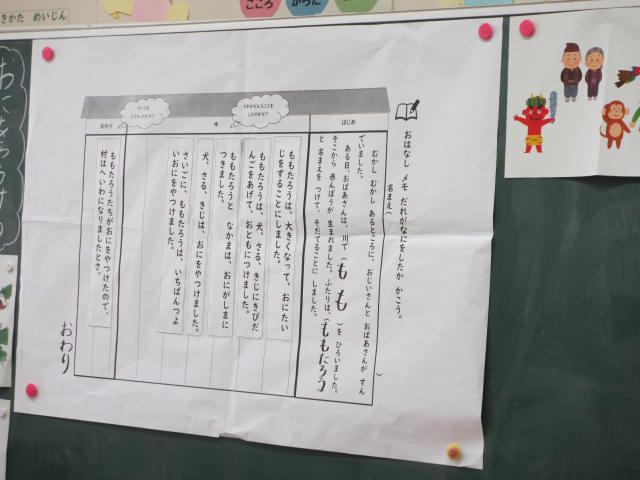 きかた めいじん
こころ
からだ
おはなし メモ だれがなにをしたか かこう。
名まえ( )
はじめ
むかし むかし あるところに、おじいさんと おばあさんが すん
でいました。
ある日、おばあさんは、川で(もも)を ひろいました。
そこから 赤んぼうが 生まれました。ふたりは、(ももたろう
と 名まえを つけて、そだてることに しました。
中
だれがどんなことを
したのかな?
ももたろうは、大きくなって、おにたい
じをすることにしました。
ももたろうは、犬、さる、きじにきびだ
んごをあげて、おともにつれて
ももたろうと なかまは、おにがしまに
つきました。
犬、さる、きじは、おにをやつけました。
さいごに、ももたろうは、いちばんつよ
いおにをやつけました。
さいごは
どうなったかな?
おわり
ももたろうたちがおにをやつけたので、
村はへいわになりましたとさ。
おわり